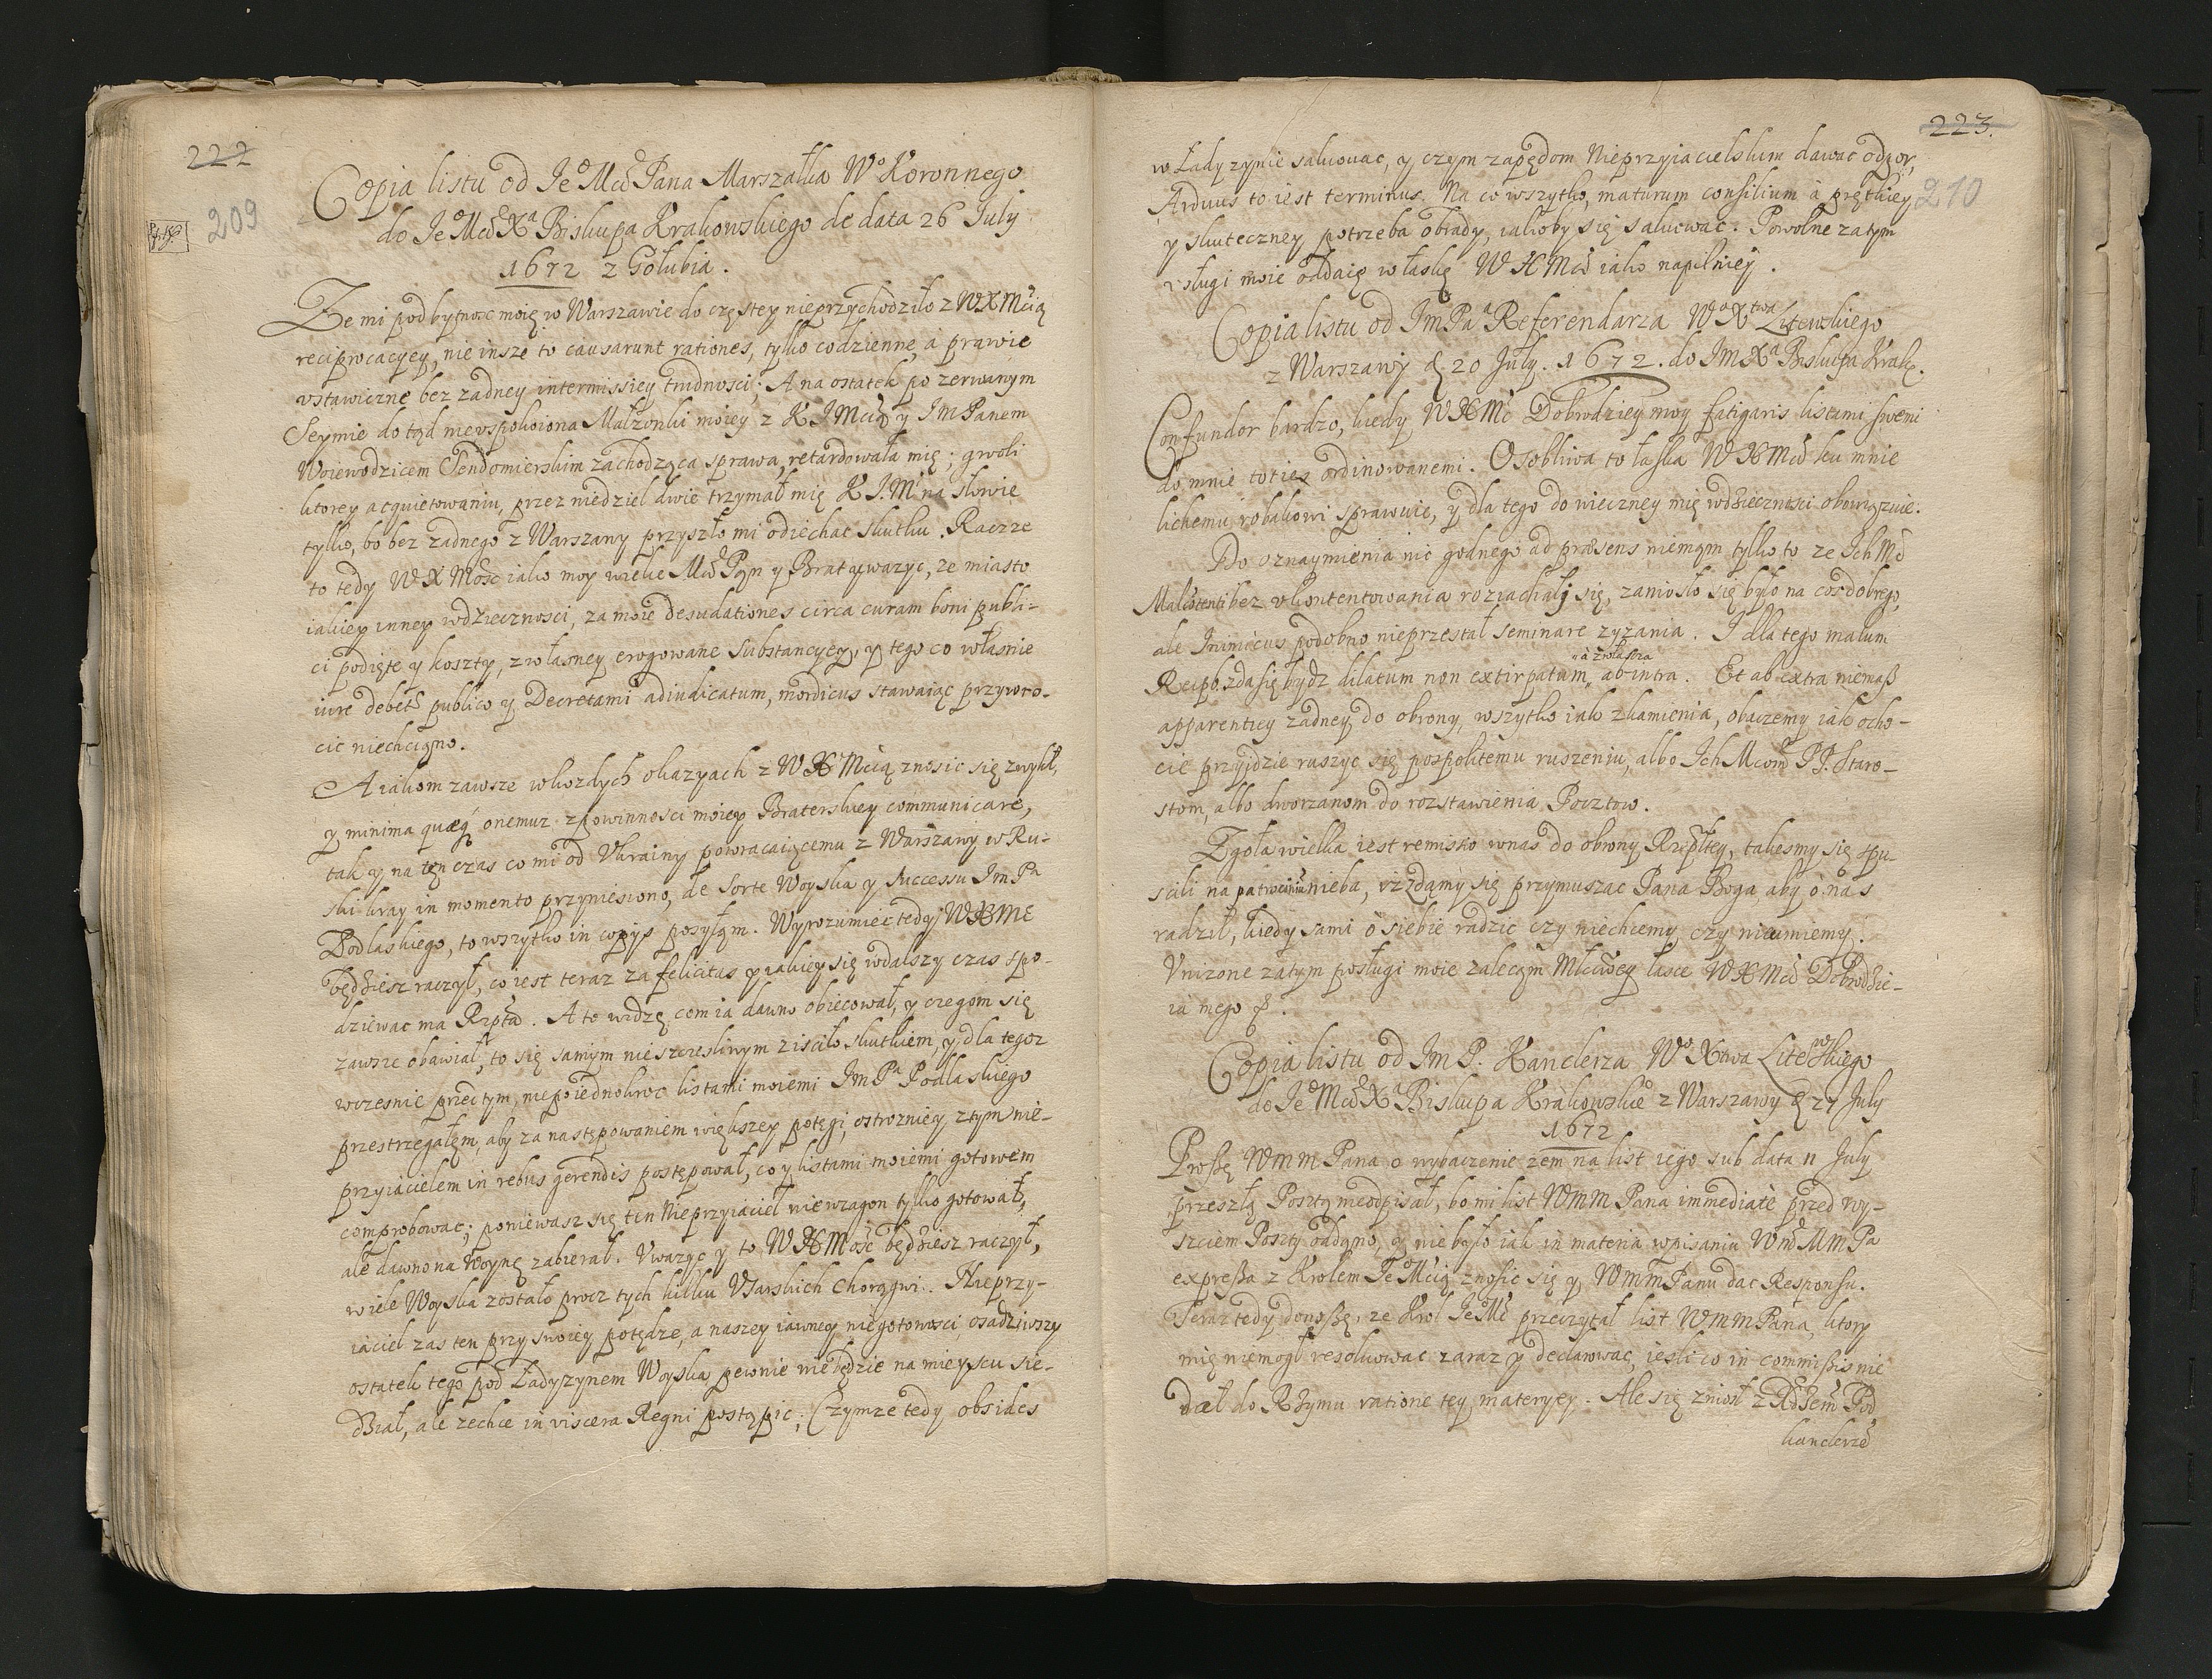 222
209
Copia listu od Je͠o Mći Pana Marszałka Wo Koronnego
do Je͠o Mći Xa Biskupa Krakowskiego de data 26 July
1672 z Gołubia.
Ze mi pod bytnosc moię w Warszawie do częstey nieprzychodziło z WXMcią
reciprocacyey, nie insze to causarunt rationes, tylko codzienne, à prawie
vstawiczne bez zadney intermissiey trudnosci; A na ostatek po zerwanym
Seymie do tąd nieuspokoiona Małzonki moiey z K J Mcią y Im Panem
Woiewodzicem Sendomierskim zachodząca sprawa, retardowała mię; gwoli
ktorey acquietowaniu, przez niedziel dwie trzymał mię K J. Mć na słowie
tylko, bo bez zadnego z Warszawy przyszło mi odiechac skutku. Raczze
to tedy WX Mosc iako moy wielce Mći Pan y Brat uwazyc, ze miasto
iakiey inney wdzięcznosci, za moie desudationes circa curam boni publi-
ci podięte y koszty, z własney erogowane Substancyey, y tego co własnie
iure debetr publico y Decretami adiudicatum, mordicus stawaiąc przywro-
cic niechcąno.
A iakom zawsze w kozdych okazyach z WXMcią znosic się zwykł,
y minima quæq; onemuz z powinnosci moiey Braterskiey communicare,
tak y na ten czas co mi od Ukrainy powracaiącemu z Warszawy w Ru-
ski kray in momento przyniesiono, de Sorte Woyska y Successu Im Pa
Podlaskiego, to wszytko in copijs posyłąm. Wyrozumiec tedy WXMć
będziesz raczył, co iest teraz za felicitas y iakiey się w dalszy czas spo-
dziewac ma Rzpta. A to widzę com ia dawno obiecował, y czegom się
zawsze obawiał, to się samym nieszczesliwym zisciło skutkiem, y dla tegoz
wczesnie przed tym, nie po iednokroc listami moiemi Im Pa Podlaskiego
przestrzegałem, aby za następowaniem większey potęgi, ostrozniey z tym nie-
przyiacielem in rebus gerendis postępował, co y listami moiemi gotowem
comprobowac; poniewasz się ten Nieprzyiaciel nie w zagon tylko gotował,
ale dawno na Woynę zabierał. Vwazyc y to WXMosc będziesz raczył,
wiele Woyska zostało procz tych kilku Vsarskich Chorągwi. Nieprzy-
iaciel zas ten przy swoiey potędze, a naszey iawney niegotowosci, osadziwszy
ostatek tego pod Ładyzynem Woyska, pewnie nie będzie na mieyscu sie-
dział, ale zechce in viscera Regni postąpic; Czymze tedy obsides
223.
210
w Ładyzynie salvowac, y czym zapędom Nieprzyiacielskim dawac odpor,
Arduus to iest terminus. Na co wszytko, maturum consilium à prętkiey
y skuteczney potrzeba obrady, iakoby się salwowac. Powolne zatym
vsługi moie oddaię w łaskę WXMći iako napilniey.
Copia listu od Im Pa Referendarza Wo Xtwa Litewskiego
z Warszawy d. 20 July. 1672. do Im Xa Biskupa Krak.
Confundor bardzo, kiedy WXMć Dobrodziey moy fatigaris listami swemi
do mnie toties ordinowanemi. Osobliwa to łaska WXMći ku mnie
lichemu robakowi sprawuie, y dla tego do wieczney mię wdzięcznosci obowiązuie.
Do oznaymienia nic godnego ad præsens niemąm tylko to ze Ich Mć
Malcontenti bez vkontentowania roziachali się, zaniosło się było na cos dobrego,
ale Inimicus podobno nieprzestał seminare zyzania. I dla tego malum
Reipb. zda się bydz dilatum non extirpatum, à zwłaszcza ab intra. Et ab extra niemasz
apparentiey zadney do obrony, wszytko iak z kamienia, obaczemy iak ocho-
cie przyjdzie ruszyc się pospolitemu ruszeniu, albo Ich Mciom PP. Staro-
stom, albo dworzanom do rozstawienia Pocztow.
Zgoła wielka iest remissio w nas do obrony Rzptey, takesmy się spu-
scili na patrocinium nieba, iz zdamy się przymuszac Pana Boga, aby o nas
radził, kiedy sami o siebie radzic czy niechcemy czy nieumiemy.
Vnizone zatym posługi moie zalecąm Mściwey łasce WXMći Dobrodzie-
ia mego &.
Copia listu od Im P. Kanclerza Wo Xtwa Litewskiego
do Je͠o Mći Xa Biskupa Krakowskie z Warszawy d. 27 July
1672
Proszę WMM Pana o wybaczenie zem na list iego sub data 11 July
przeszłą Posztą nieodpisał, bo mi list WMM Pana immediatè przed wy-
sciem Poszty oddano, y nie było iak in materia wpisaniu Wm̃ M m Pa
expressa z Krolem Je͠o Mcią znosic się y WMM Panu dac Responsu.
Teraz tedy donoszę, ze Krol Je͠ Mć przeczytał list WMM Pana, ktory
mię niemogł resolwowac zaraz y declarowac, iesli co in commissis nie
dał do Rzymu ratione tey materyey. Ale się zniosł z Xdzem Pod
kanclerze͠